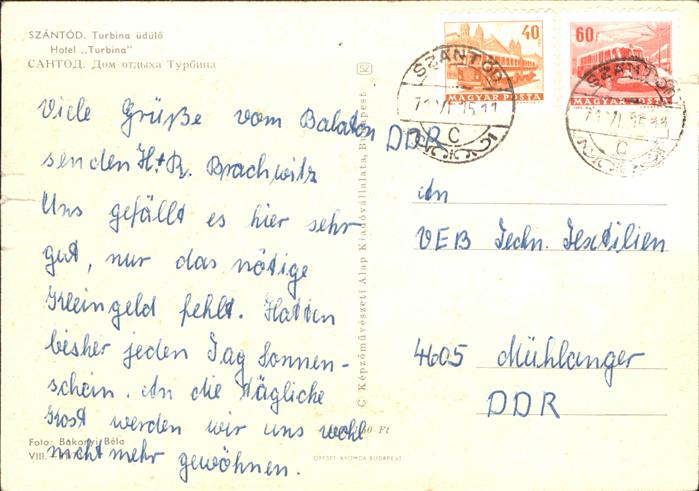 SZÁNTÓD. Turbina üdülő
Hotel „Turbina"
САНТОД. Дом отдыха Турбина
Viele Grüße vom Balaton
senden H.+R. Brachwitz
Uns gefällt es hier sehr
gut, nur das nötige
Kleingeld fehlt. Hatten
bisher jeden Tag Sonnen-
schein. An die tägliche
Kost werden wir uns wohl
nicht mehr gewöhnen.
Foto: Bakonyi Béla
VIII.
60 Ft
OFFSET-NYOMDA BUDAPEST.
C Képzőművészeti Alap Kiadóvállalata, Budapest
40f
MAGYAR POSTA
60f
MAGYAR POSTA
SZÁNTÓD
C
SZÁNTÓD
C
DDR
An
VEB Techn. Textilien
4605 Mühlanger
DDR